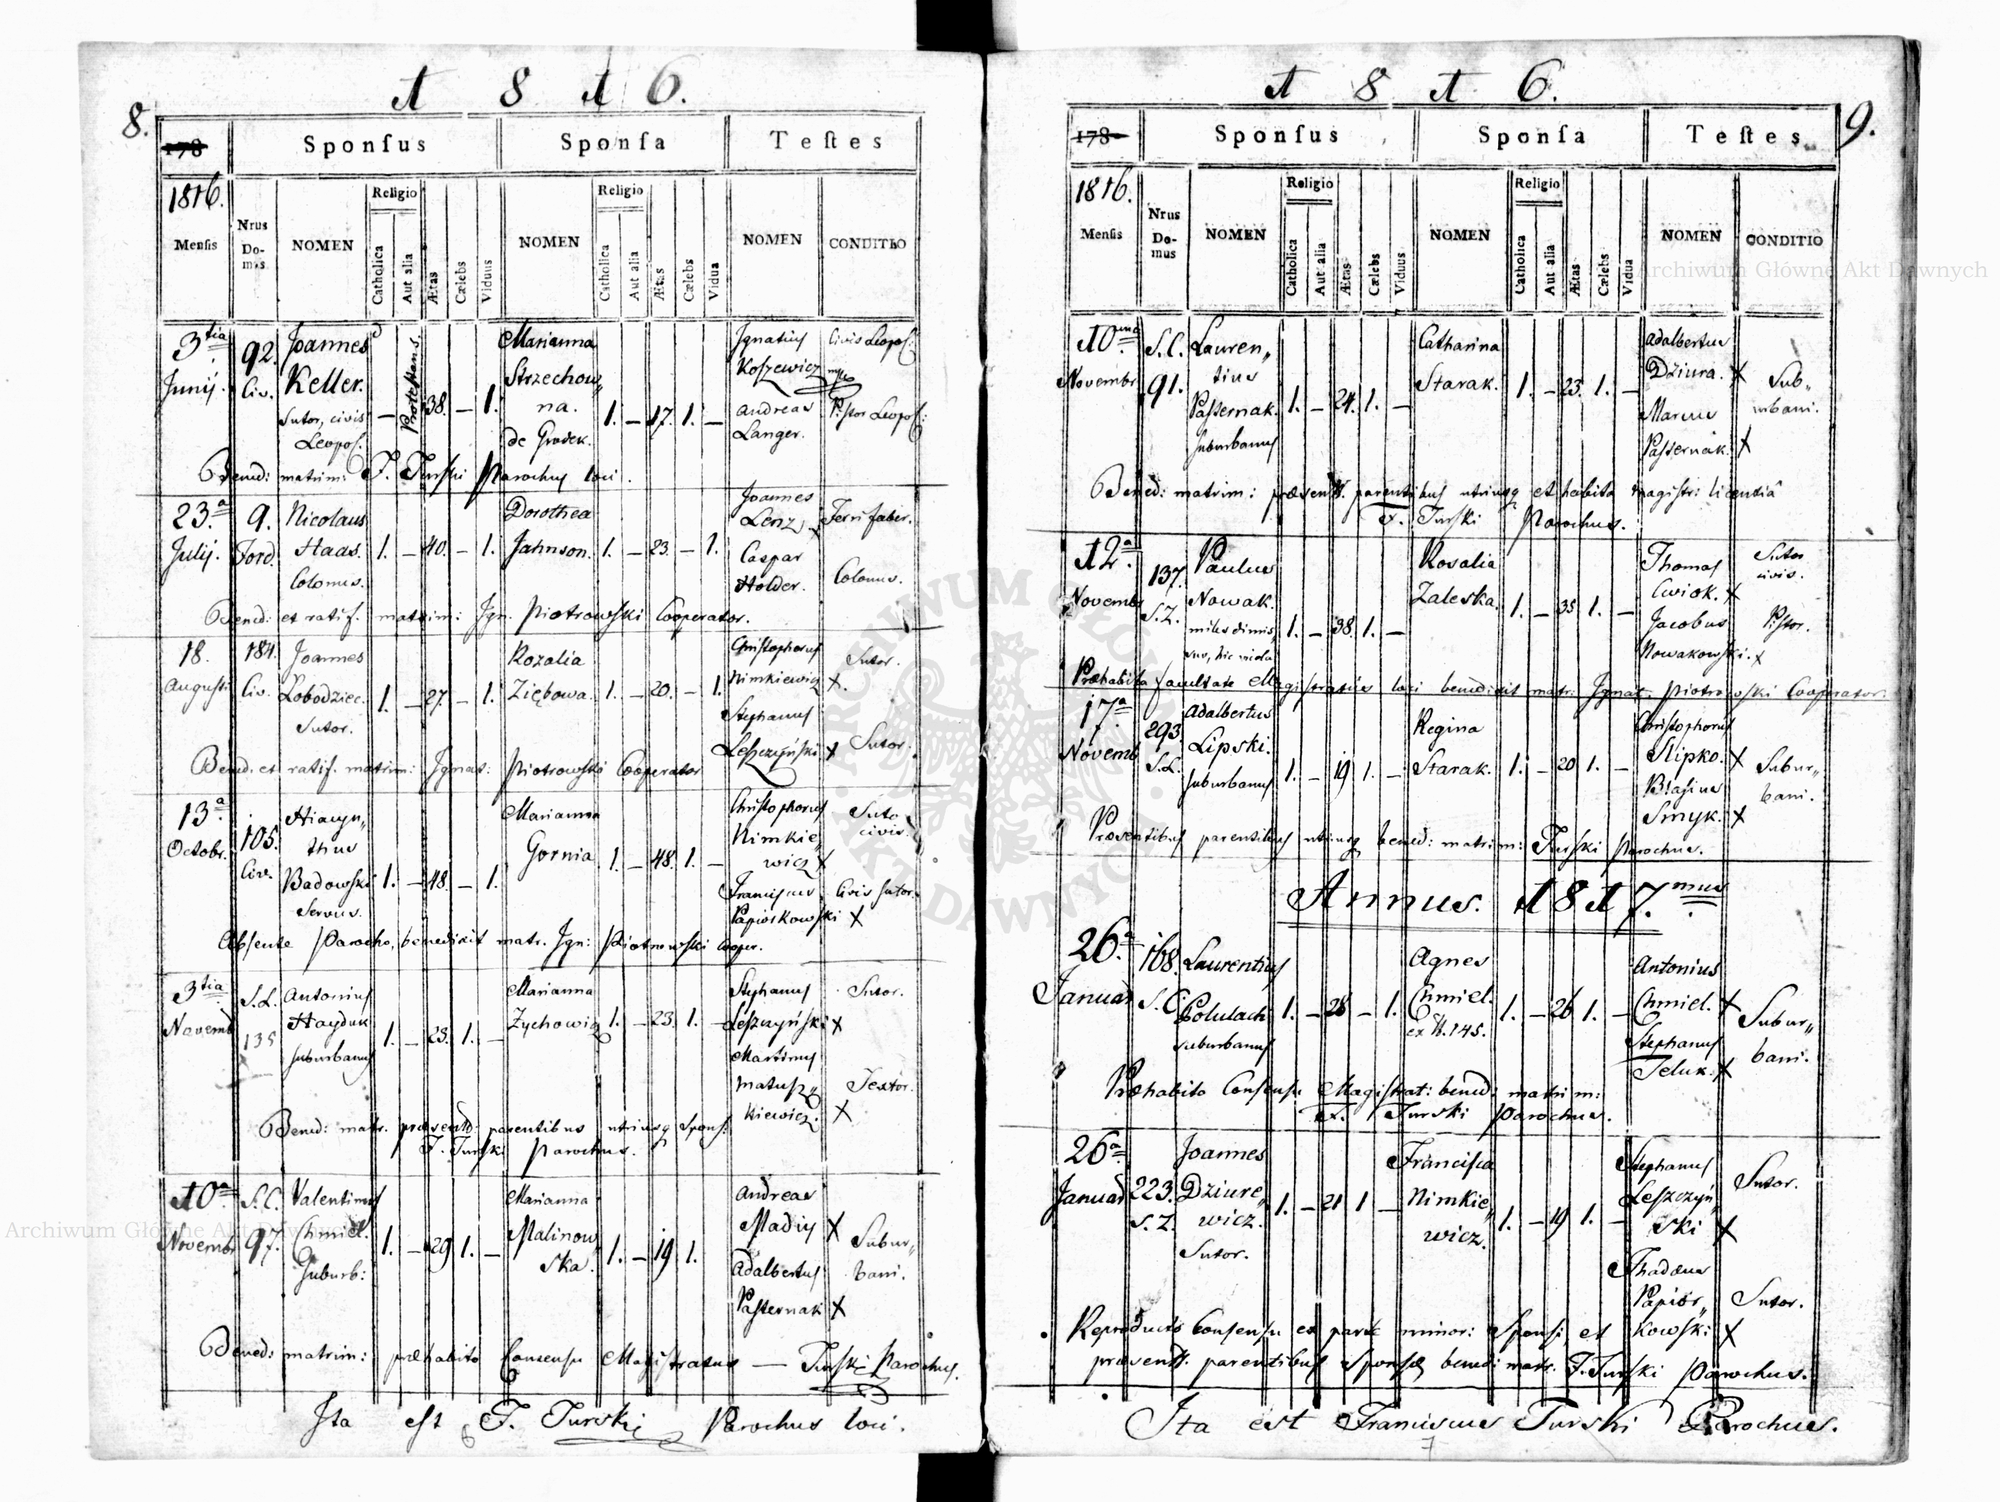 1 8 1 6.
8.
178
Sponsus
Sponsa
Testes
1816.
Mensis
Nrus Domus
NOMEN
Religio
Catholica
Aut alia
Ætas
Cælebs
Viduus
NOMEN
Religio
Catholica
Aut alia
Ætas
Cælebs
Vidua
NOMEN
CONDITIO
3tia Junij.
92. Civ.
Joannes
Keller.
Sutor, civis
Leopol:
—
Protestans.
38. — 1.
Marianna
Strzechow„
na.
de Grodek.
1. — 17. 1. —
Ignatius
Koszewicz
Civis Leopol:
Andreas
Langer.
Pistor Leopol:
Bened: matrim: F. Turski Parochus loci.
23.a Julij.
9. Ford.
Nicolaus
Haas.
Colonus.
1. — 40. — 1.
Dorothea
Jahnson.
1. — 23. — 1.
Joannes
Lenz,
Ferri faber.
Caspar
Holder.
Colonus.
Bened: et ratif. matrim: Ign. Piotrowski Cooperator.
18. Augusti
184. Civ.
Joannes
Łobodziec.
Sutor.
1. — 27. — 1.
Rozalia
Ziębowa.
1. — 20. — 1.
Christophorus
Nimkiewicz X.
Sutor.
Stephanus
Leszczyński X
Sutor.
Bened: et ratif. matrim: Ignat: Piotrowski Cooperator
13.a Octobr.
105. Civ.
Hiacyn„
thus
Badowski
Servus.
1. — 48. — 1.
Marianna
Gornia
1. — 48. 1. —
Christophorus
Nimkie„
wicz X
Sutor
civis.
Franciscus
Papiorkowski X
Civis sutor.
Absente Parocho, benedixit matr. Ign: Piotrowski Cooper.
3tia Novemb
S.L. 135
Antonius
Hayduk
suburbanus
1. — 23. 1. —
Marianna
Zychowicz
1. — 23. 1. —
Stephanus
Leszczyński X
Sutor.
Martinus
Matusz„
kiewicz. X
Textor.
Bened: matr. praesentib: parentibus utriusq Spons:
F. Turski Parochus.
10.a Novembr
S.C. 97.
Valentinus
Chmiel.
Suburb:
1. — 29. 1. —
Marianna
Malinow„
ska.
1. — 19. 1.
Andreas
Madiy X
Subur„
bani.
Adalbertus
Pasternak X
Bened: matrim: praehabito Consensu Magistratus — Turski Parochus.
Ita est F. Turski Parochus loci.
1 8 1 6.
9.
178
Sponsus
Sponsa
Testes
1816.
Mensis
Nrus Domus
NOMEN
Religio
Catholica
Aut alia
Ætas
Cælebs
Viduus
NOMEN
Religio
Catholica
Aut alia
Ætas
Cælebs
Vidua
NOMEN
CONDITIO
10ma Novembr
S.C. 91.
Lauren„
tius
Pasternak.
suburbanus
1. — 24. 1. —
Catharina
Starak.
1. — 23. 1. —
Adalbertus
Dziura. X
Sub„
urbani.
Marcus
Pasternak. X
Bened: matrim: praesent. parentibus utriusq et habita magistr: licentia
F. Turski Parochus.
12.a Novembr
137. S.Z.
Paulus
Nowak.
miles dimis„
sus,
1. — 38. 1. —
Rosalia
Zaleska.
1. — 35 1. —
Thomas
Cwiok. X
Sutor
civis.
Jacobus
Nowakowski. X
Pistor.
Praehabita facultate Magistratus loci benedixit matr. Ignat. Piotrowski Cooperator.
17.a Novemb
293. S.L.
Adalbertus
Lipski.
suburbanus
1. — 19 1. —
Regina
Starak.
1. — 20 1. —
Christophorus
Slipko. X
Subur„
bani.
Blasius
Smyk. X
Praesentibus parentibus utriusq bened: matrim: Turski Parochus.
Annus. 1817.mus
26.a Januar
168. S.C.
Laurentius
Polulach
suburbanus
1. — 28 — 1.
Agnes
Chmiel.
ex N. 145.
1. — 26 1. —
Antonius
Chmiel. X
Subur„
bani.
Stephanus
Teluk. X
Praehabito Consensu Magistrat: bened: matrim:
F. Turski Parochus.
26.a Januar
223. S.Z.
Joannes
Dziure„
wicz.
Sutor.
1. — 21 1 —
Francisca
Nimkie„
wicz.
1. — 19 1. —
Stephanus
Leszczyń„
ski X
Sutor.
Thadæus
Papior„
kowski X
Sutor.
Reproducto Consensu ex parte minor: Sponsi et
praesent. parentibus Sponsæ bened: matr. F. Turski Parochus.
Ita est Franciscus Turski Parochus.
7
Archiwum Główne Akt Dawnych
Archiwum Główne Akt Dawnych
ARCHIWUM GŁÓWNE AKT DAWNYCH